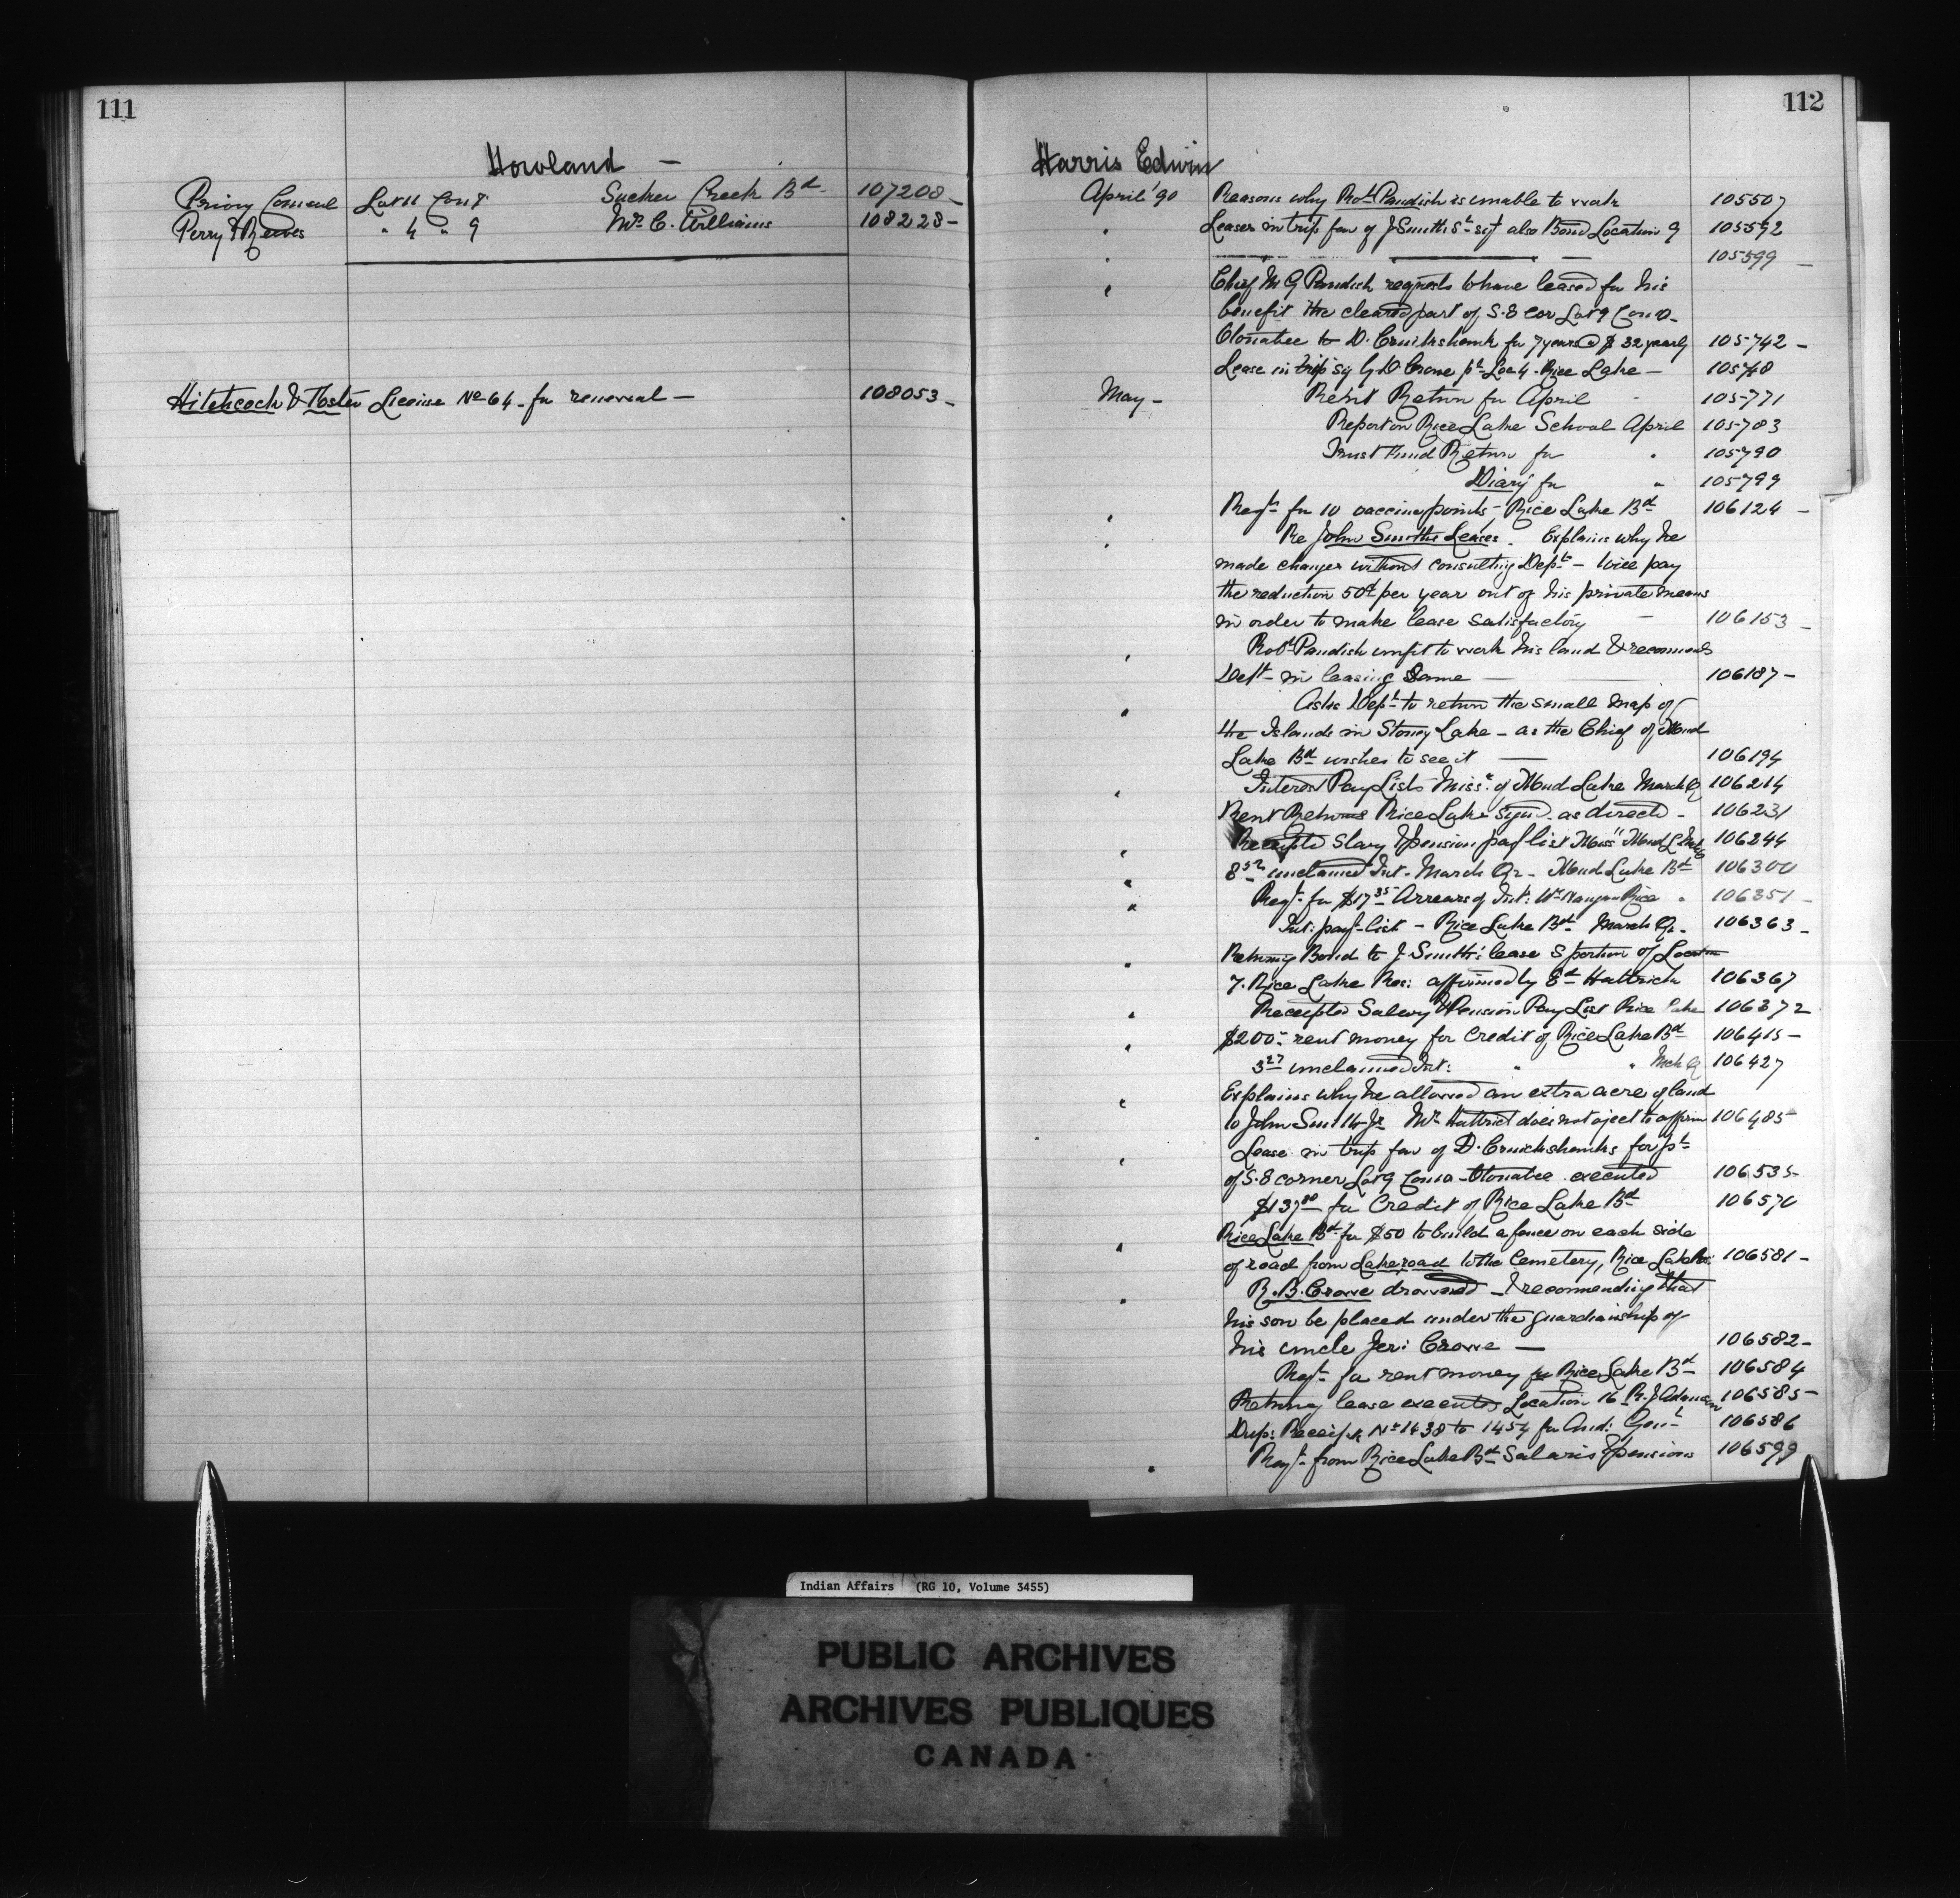 111
Howland -
Privy Council Lot 11 Con 8 Sucker Creek Bd. 107208 -
Perry & Reeves " 4 " 9 Mr. C. Williams 108228 -
Hitchcock & Foster License No 64 - for renewal - 108053 -
112
Harris Edwin
April '90 Reasons why Robt Paudish is unable to work 105507
" Leases in trip fav of J Smith Sr sigd also Bond Location 9 105592
" 105599 -
" Chief M G Paudish requests to have leased for his
benefit the cleared part of S.E cor Lot 9 Con 10 -
Otonabee to D. Cruikshank for 7 years @ $32 yearly 105742 -
Lease in trip sig G D. Crowe pt Loc 4 - Rice Lake - 105748
May - Rent Return for April - 105771
Report on Rice Lake School April 105783
Trust Fund Return for " 105790
Diary for " 105799
" Reqt for 10 vaccine points - Rice Lake Bd 106124 -
" Re John Smiths Leases. Explains why he
made changes without consulting Dept - will pay
the reduction 50¢ per year out of his private means
in order to make lease satisfactory - 106153 -
" Robt Paudish unfit to work his land & recommends
Dept in leasing Same - 106187 -
" Asks Dept to return the small map of
the Islands in Stoney Lake - as the Chief of Mud
Lake Bd wishes to see it - 106194
" Interest Pay Lists Miss. of Mud Lake March Q 106214
Rent Returns Rice Lake as directed - 106231
" Receipted Slary & pension pay list Miss Mud L 106244
" 8.52 unclaimed Int. March Qr - Mud Lake Bd 106300
" Reqt for $17.35 Arrears of Int: Wm Rice " 106351 -
Int: payt list - Rice Lake Bd March Qr. 106363 -
" Returning Bond to J Smith's lease S portion of Location
7. Rice Lake Res: affirmed by Ed Hattrick 106367
" Receipted Salary & Pension Pay List Rice Lake 106372
" $200.- rent money for Credit of Rice Lake Bd 106415 -
3.27 unclaimed Int: " " Mch Q 106427
" Explains why he allowed an extra acre of land
to John Smith Jr Mr. Hattrick does not oject to affirm 106485 -
" Lease in trip fav of D. Cruickshanks for pt
of S.E corner Lot 9 Con 10 - Otonabee executed 106535
$137.80 for Credit of Rice Lake Bd 106570
" Rice Lake Bd for $50 to build a fence on each side
of road from Lake road to the Cemetery, Rice Lake Res: 106581 -
" R. B. Crowe drowned - & recommending that
his son be placed under the guardianship of
his uncle Jeri Crowe - 106582 -
Reqt for rent money for Rice Lake Bd 106584
Returning lease executed Location 16 R. J Adamson 106585 -
Dup: Receipts Nos 1438 to 1454 for Aud: Genl 106586
" Reqt from Rice Lake Bd Salaries & pensions 106599
Indian Affairs (RG 10, Volume 3455)
PUBLIC ARCHIVES
ARCHIVES PUBLIQUES
CANADA